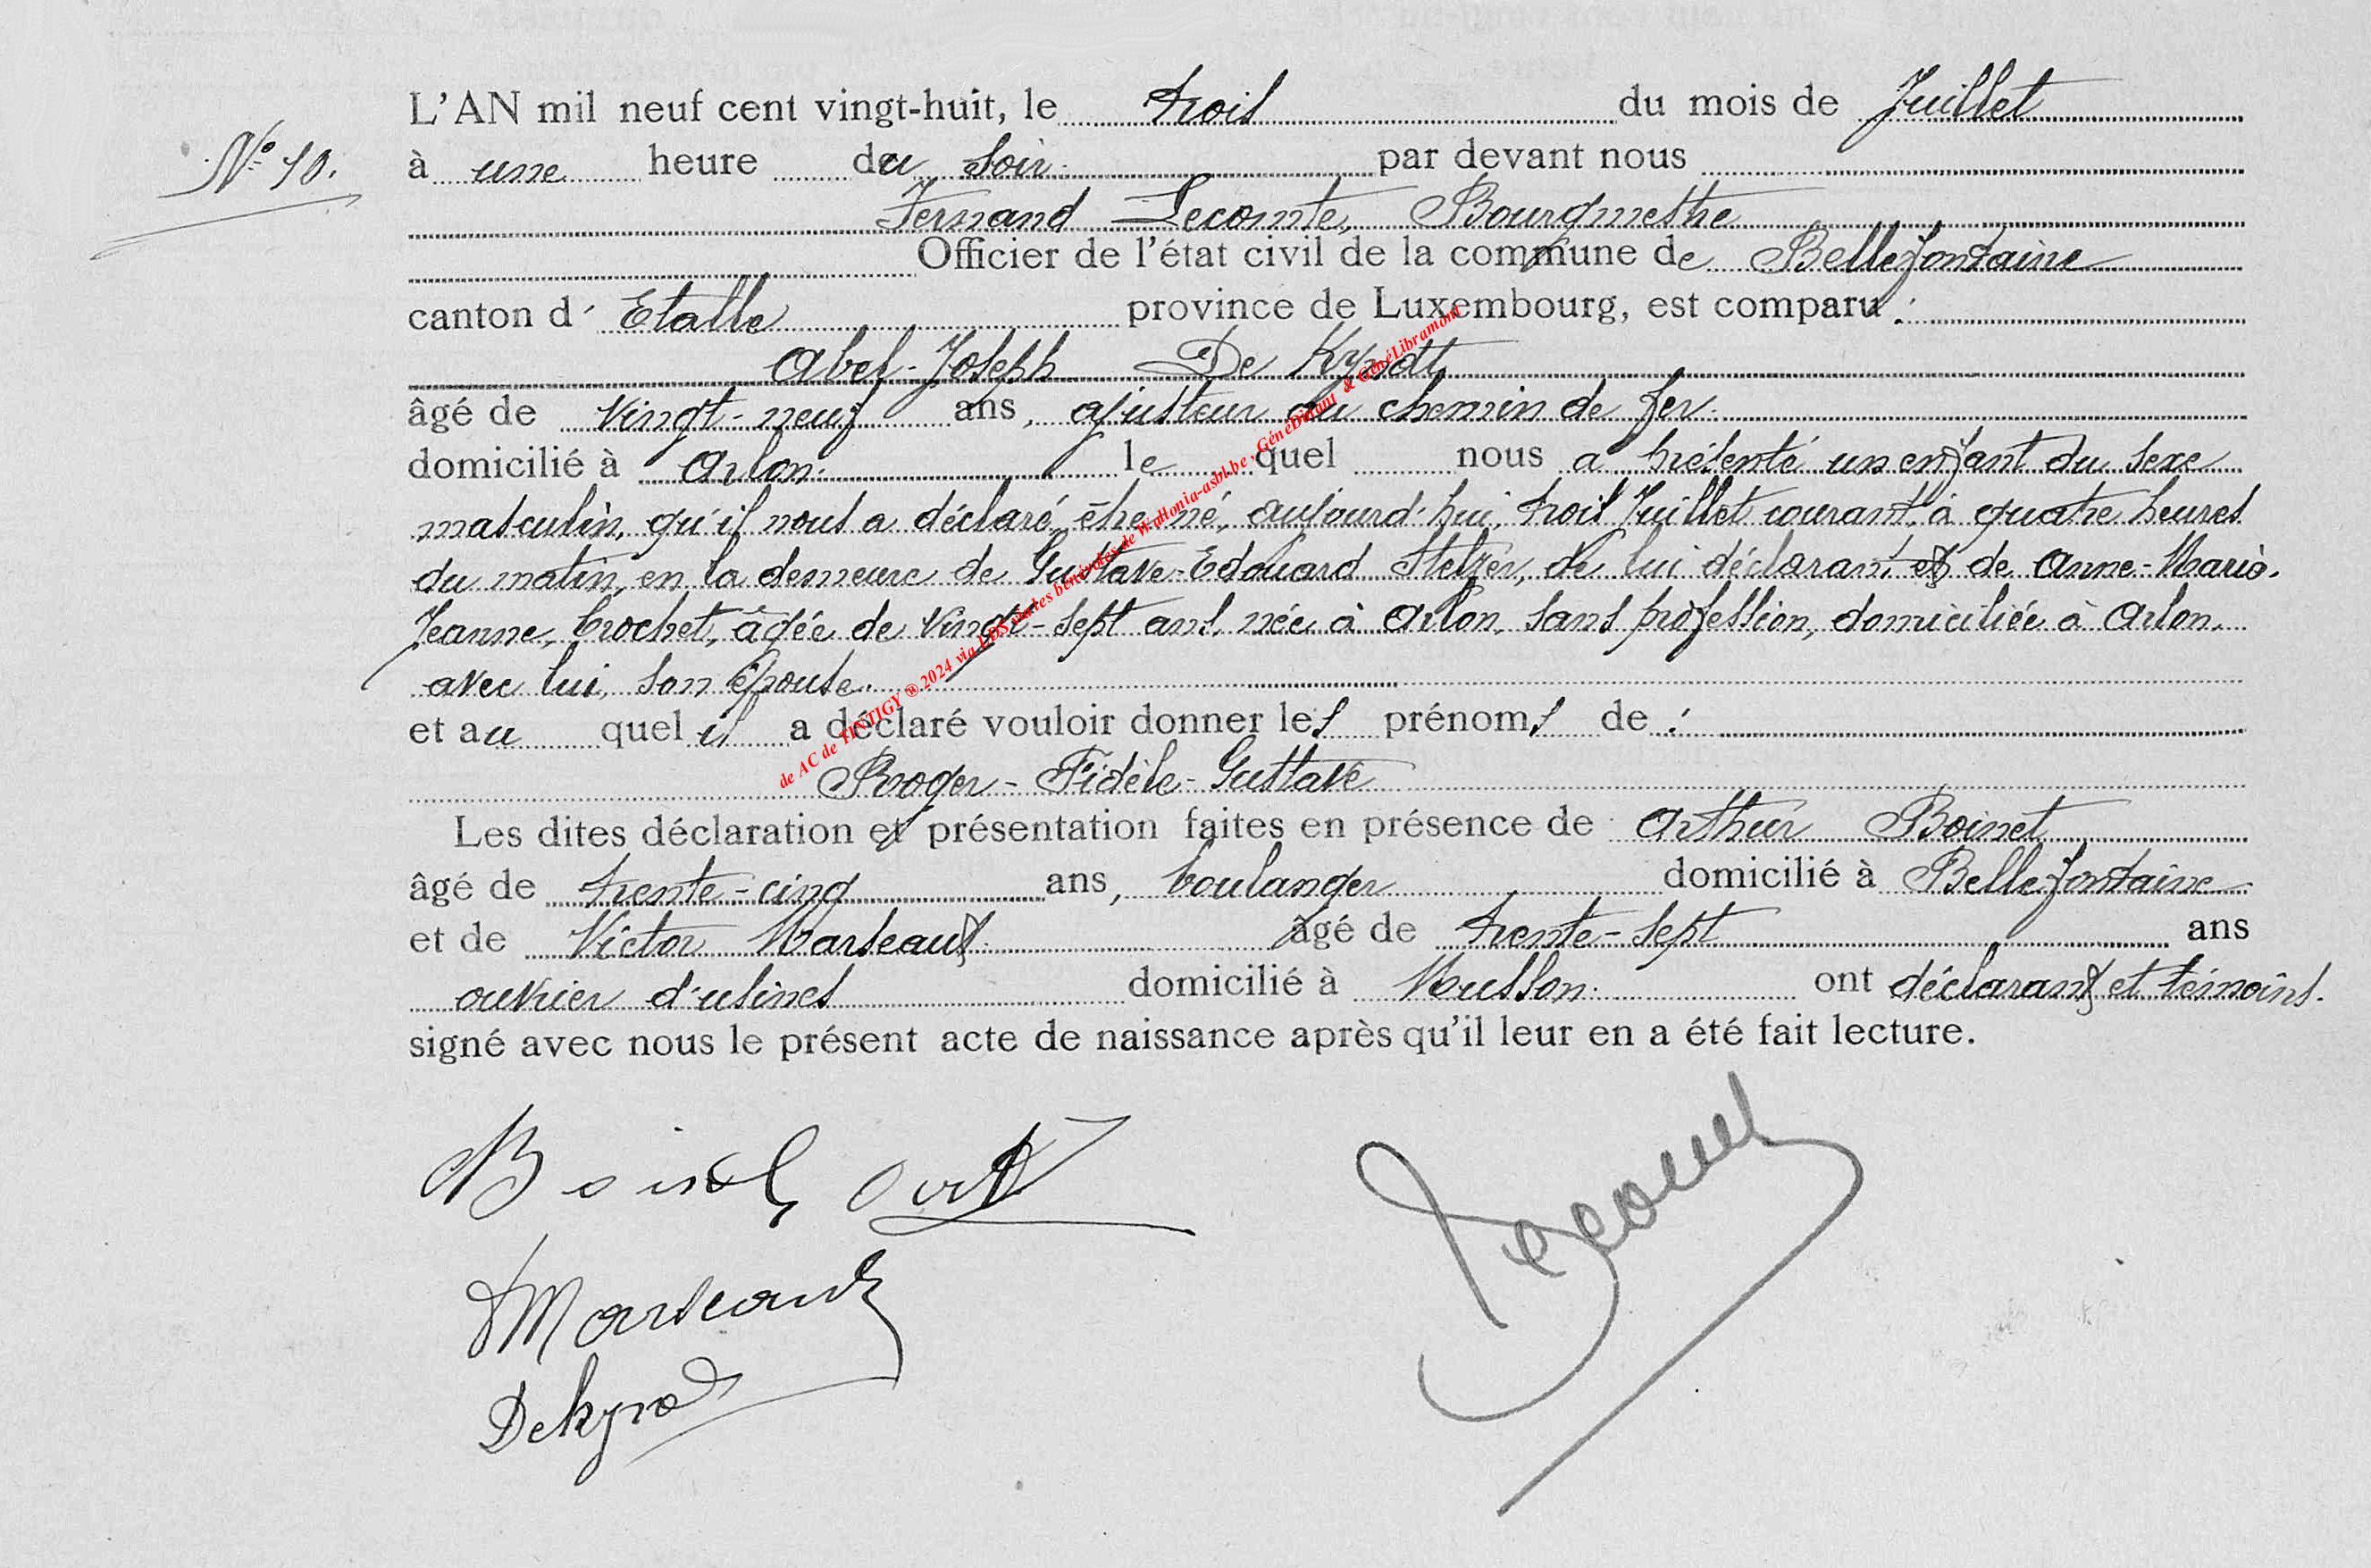 L'AN mil neuf cent vingt-huit, le trois du mois de Juillet
N° 10.
à une heure du soir. par devant nous
Fernand Lecomte, Bourgmestre
Officier de l'état civil de la commune de Bellefontaine
canton d' Etalle province de Luxembourg, est comparu :
Abel-Joseph De Kyndt
âgé de vingt-neuf ans, ajusteur au chemin de fer.
domicilié à Arlon. lequel nous a présenté un enfant du sexe
masculin, qu'il nous a déclaré être né, aujourd'hui, trois Juillet courant, à quatre heures
du matin, en la demeure de Gustave-Edouard Stelzer, de lui déclarant et de Anne-Marie-
Jeanne, Crochet, âgée de vingt-sept ans, née à Arlon, sans profession, domiciliée à Arlon,
avec lui, son épouse.
et au quel il a déclaré vouloir donner les prénoms de :
Roger-Fidèle-Gustave
Les dites déclaration et présentation faites en présence de Arthur Boinet
âgé de trente-cinq ans, boulanger domicilié à Bellefontaine
et de Victor Marseaux âgé de trente-sept ans
ouvrier d'usines domicilié à Musson. ont déclarant et témoins.
signé avec nous le présent acte de naissance après qu'il leur en a été fait lecture.
de AC de TINTIGY ® 2024 via LDS par les bénévoles de Wallonia-asbl.be, GénéDinant & GénéLibramont
Boinet Art
Marseaux
Dekynd